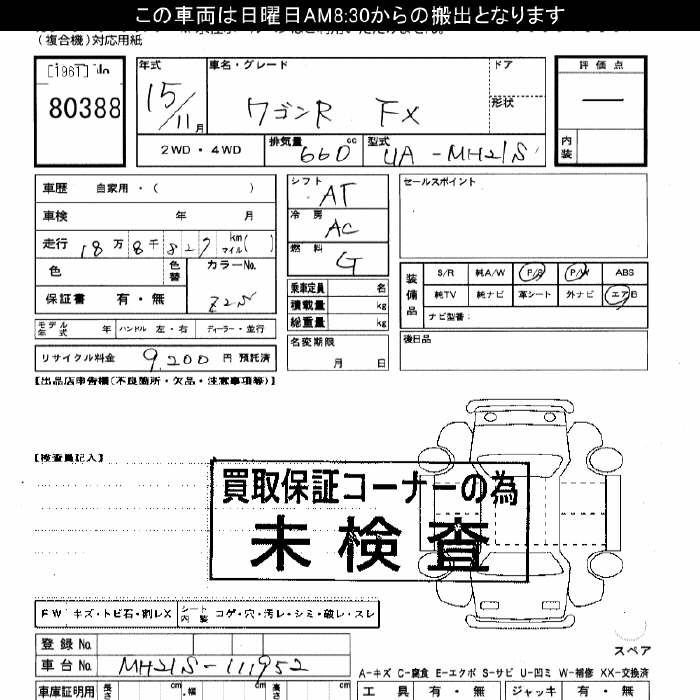 この車両は日曜日AM8:30からの搬出となります
(複合機)対応用紙
80388
年式
15/11月
車名・グレード
ワゴンR FX
ドア
形状
評価点
内装
2WD・4WD
排気量
660 cc
型式
UA-MH21S
車歴 自家用・( )
車検 年 月
走行 18万8千827 km マイル( )
色
色替
カラーNo.
Z2S
保証書 有・無
モデル年式 年 ハンドル 左・右 ディーラー・並行
リサイクル料金 9,200 円 預託済
シフト AT
冷房 AC
燃料 G
乗車定員 名
積載量 kg
総重量 kg
名変期限
月 日
セールスポイント
装備品
S/R 純A/W P/S P/W ABS
純TV 純ナビ 革シート 外ナビ エアB
ナビ型番:
後日品
【出品店申告欄(不良箇所・欠品・注意事項等)】
【検査員記入】
買取保証コーナーの為
未検査
FW キズ・トビ石・割レX
シート内装 コゲ・穴・汚レ・シミ・破レ・スレ
スペア
登録No.
車台No. MH21S-111952
A-キズ C-腐食 E-エクボ S-サビ U-凹ミ W-補修 XX-交換済
車庫証明用 長さ cm 幅 cm 高さ cm
工具 有・無 ジャッキ 有・無